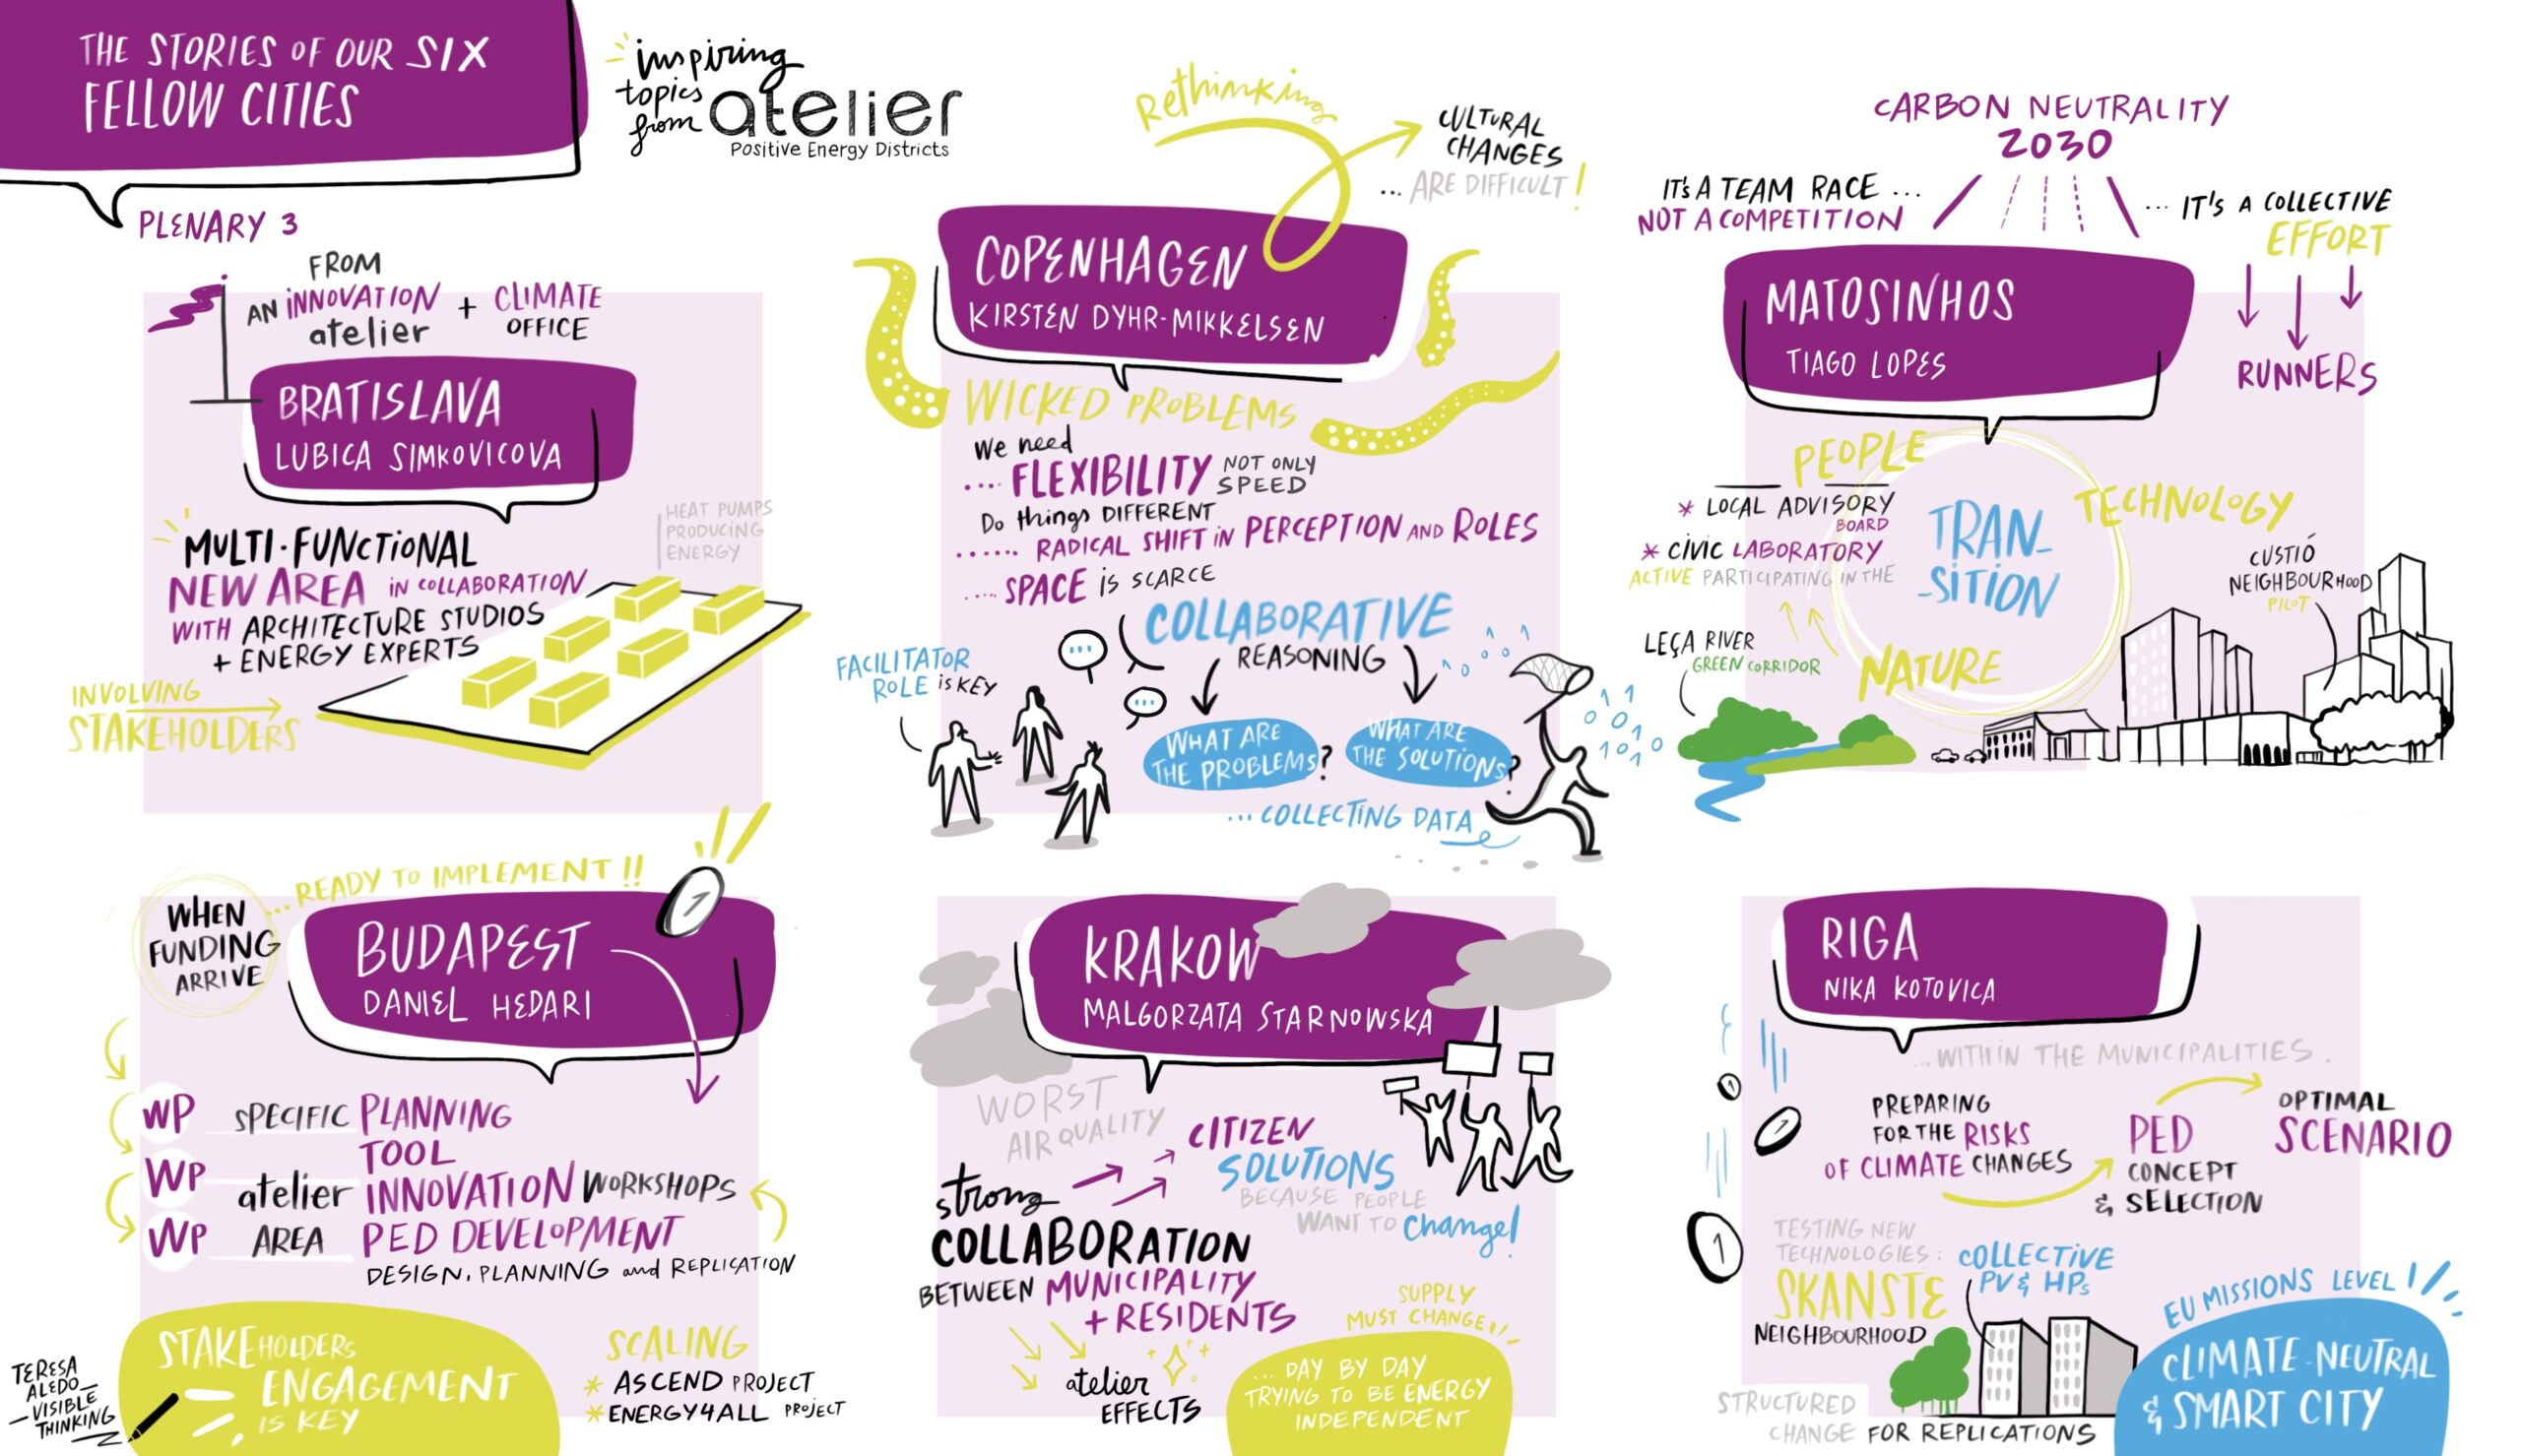 THE STORIES OF OUR SIX
FELLOW CITIES
inspiring
topics
from
atelier
Positive Energy Districts
PLENARY 3
FROM
AN INNOVATION + CLIMATE
atelier OFFICE
BRATISLAVA
LUBICA SIMKOVICOVA
MULTI-FUNCTIONAL
NEW AREA IN COLLABORATION
WITH ARCHITECTURE STUDIOS
+ ENERGY EXPERTS
HEAT PUMPS
PRODUCING
ENERGY
INVOLVING
STAKEHOLDERS
Rethinking
CULTURAL
CHANGES
... ARE DIFFICULT!
COPENHAGEN
KIRSTEN DYHR-MIKKELSEN
WICKED PROBLEMS
We need
.... FLEXIBILITY NOT ONLY
SPEED
Do things DIFFERENT
...... RADICAL SHIFT IN PERCEPTION AND ROLES
.... SPACE IS SCARCE
COLLABORATIVE
REASONING
FACILITATOR
ROLE IS KEY
WHAT ARE
THE PROBLEMS?
WHAT ARE
THE SOLUTIONS?
... COLLECTING DATA
CARBON NEUTRALITY
2030
IT'S A TEAM RACE ...
NOT A COMPETITION
... IT'S A COLLECTIVE
EFFORT
RUNNERS
MATOSINHOS
TIAGO LOPES
PEOPLE
* LOCAL ADVISORY
BOARD
* CIVIC LABORATORY
ACTIVE PARTICIPATING IN THE
TRAN-
-SITION
TECHNOLOGY
CUSTIÓ
NEIGHBOURHOOD
PILOT
LEÇA RIVER
GREEN CORRIDOR
NATURE
WHEN
FUNDING
ARRIVE
... READY TO IMPLEMENT!!
BUDAPEST
DANIEL HEDARI
1
WP SPECIFIC PLANNING
TOOL
WP atelier INNOVATION WORKSHOPS
WP AREA PED DEVELOPMENT
DESIGN, PLANNING and REPLICATION
STAKEHOLDERS
ENGAGEMENT
IS KEY
SCALING
* ASCEND PROJECT
* ENERGY4ALL PROJECT
TERESA
ALEDO
VISIBLE
THINKING
KRAKOW
MALGORZATA STARNOWSKA
WORST
AIR QUALITY
CITIZEN
SOLUTIONS
BECAUSE PEOPLE
WANT TO Change!
strong
COLLABORATION
BETWEEN MUNICIPALITY
+ RESIDENTS
atelier
EFFECTS
SUPPLY
MUST CHANGE!!
... DAY BY DAY
TRYING TO BE ENERGY
INDEPENDENT
RIGA
NIKA KOTOVICA
... WITHIN THE MUNICIPALITIES.
PREPARING
FOR THE RISKS
OF CLIMATE CHANGES
PED
CONCEPT
& SELECTION
OPTIMAL
SCENARIO
1
1
1
TESTING NEW
TECHNOLOGIES:
SKANSTE
NEIGHBOURHOOD
COLLECTIVE
PV & HPs
STRUCTURED
CHANGE FOR REPLICATIONS
EU MISSIONS LEVEL
CLIMATE-NEUTRAL
& SMART CITY